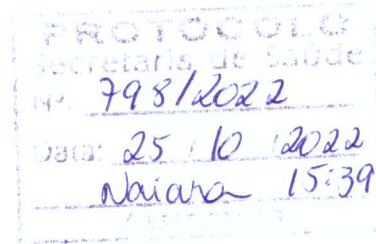 PROTOCOLO
Secretaria de Saúde
Nº 798/2022
Data: 25 / 10 / 2022
Naiara 15:39